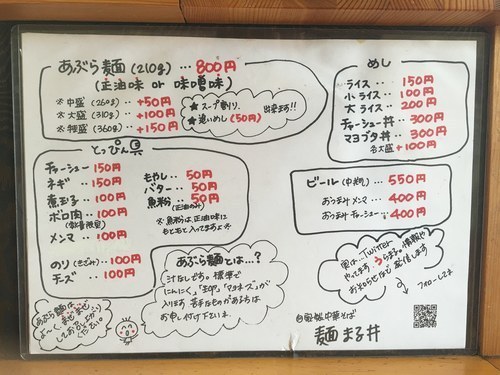 あぶら麺(210g)…800円
(正油味 or 味噌味)
※中盛(260g)+50円
※大盛(310g)+100円
※特盛(360g)+150円
★スープ割り、
★追いめし(50円)
出来ます!!
とっぴん具
チャーシュー 150円
ネギ … 150円
煮玉子 … 100円
ホロ肉 … 100円
(数量限定)
メンマ … 100円
のり(きざみ)… 100円
チーズ … 100円
もやし … 50円
バター … 50円
魚粉 … 50円
(正油のみ)
※魚粉は、正油味に
もともと入ってますよ
めし
ライス … 150円
小ライス … 100円
大ライス … 200円
チャーシュー丼 … 300円
マヨブタ丼 … 300円
各大盛 +100円
ビール(中瓶)… 550円
おつまみメンマ … 400円
おつまみチャーシュー … 400円
あぶら麺とは…?
汁なしそば。標準で
にんにく、玉ネギ、マヨネーズが
入ります。苦手なものがあるば
お申し付け下さいませ。
あぶら麺は、まぜまぜ
してお召し上がり
ください。
実は…Twitter
やってます。うら麺の情報や
お知らせなどを配信します
フォローしてネ
自家製中華そば
麺 まる井